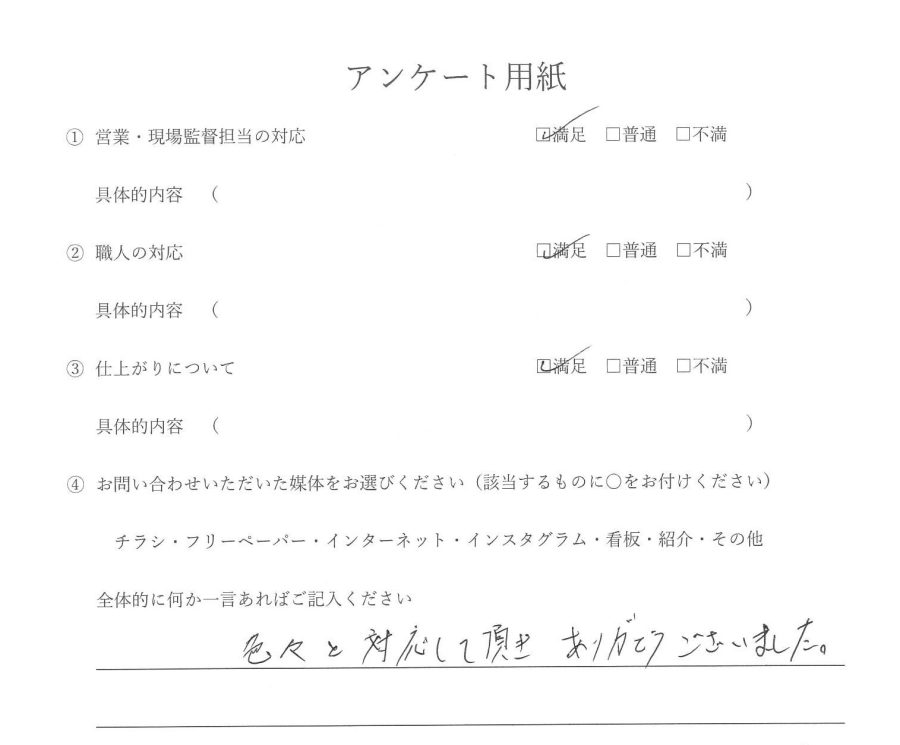 アンケート用紙
① 営業・現場監督担当の対応 ☑満足 □普通 □不満
具体的内容 ( )
② 職人の対応 ☑満足 □普通 □不満
具体的内容 ( )
③ 仕上がりについて ☑満足 □普通 □不満
具体的内容 ( )
④ お問い合わせいただいた媒体をお選びください（該当するものに〇をお付けください）
チラシ・フリーペーパー・インターネット・インスタグラム・看板・紹介・その他
全体的に何か一言あればご記入ください
色々と対応して頂き ありがとうございました。